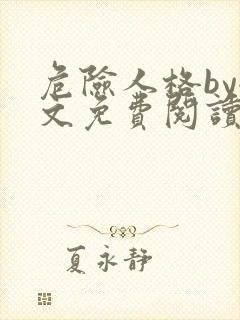 危險人格by
文免費閱讀
夏永靜